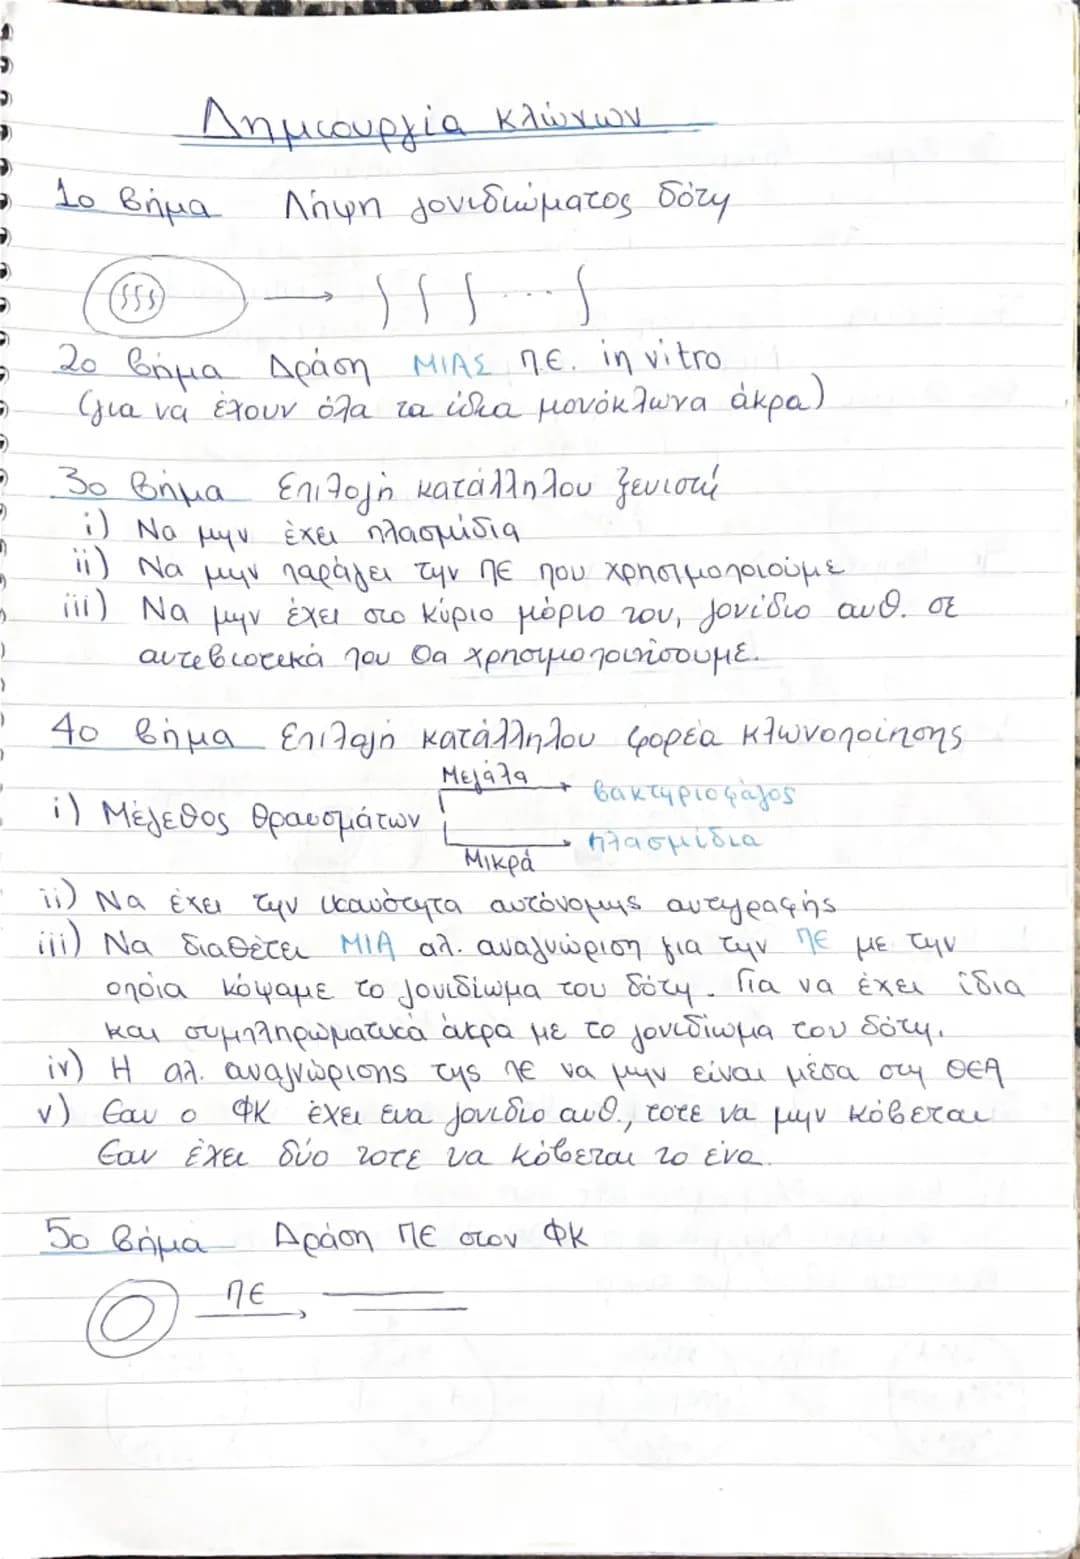 Δημιουργία κλώνων
1ο βήμα Λήψη γονιδιώματος δότη
2ο βήμα Δράση ΜΙΑΣ ΠΕ. in vitro
(για να έχουν όλα τα ίδια μονόκλωνα άκρα)
3ο βήμα Επιλογή κατάλληλου ξενιστή
i) Να μην έχει πλασμίδια
ii) Να μην παράγει την ΠΕ που χρησιμοποιούμε
iii) Να μην έχει στο κύριο μόριο του, γονίδιο ανθ. σε
αντιβιοτικά που θα χρησιμοποιήσουμε.
4ο βήμα Επιλογή κατάλληλου φορέα κλωνοποίησης
Μεγάλα βακτηριοφάγος
i) Μέγεθος θραυσμάτων
πλασμίδια
Μικρά
ii) Να έχει την ικανότητα αυτόνομης αντιγραφής
iii) Να διαθέτει ΜΙΑ αλ. αναγνώριση για την ΠΕ με την
οποία κόψαμε το γονιδίωμα του δότη. Για να έχει ίδια
και συμπληρωματικά άκρα με το γονιδίωμα του δότη.
iv) Η αλ. αναγνώρισης της ΠΕ να μην είναι μέσα στη ΘΕΑ
v) Εαν ο ΦΚ έχει ένα γονιδιο ανθ., τότε να μην κόβεται
Εαν έχει δύο τοτε να κόβεται το ένα.
5ο βήμα Δράση ΠΕ στον ΦΚ
ΠΕ